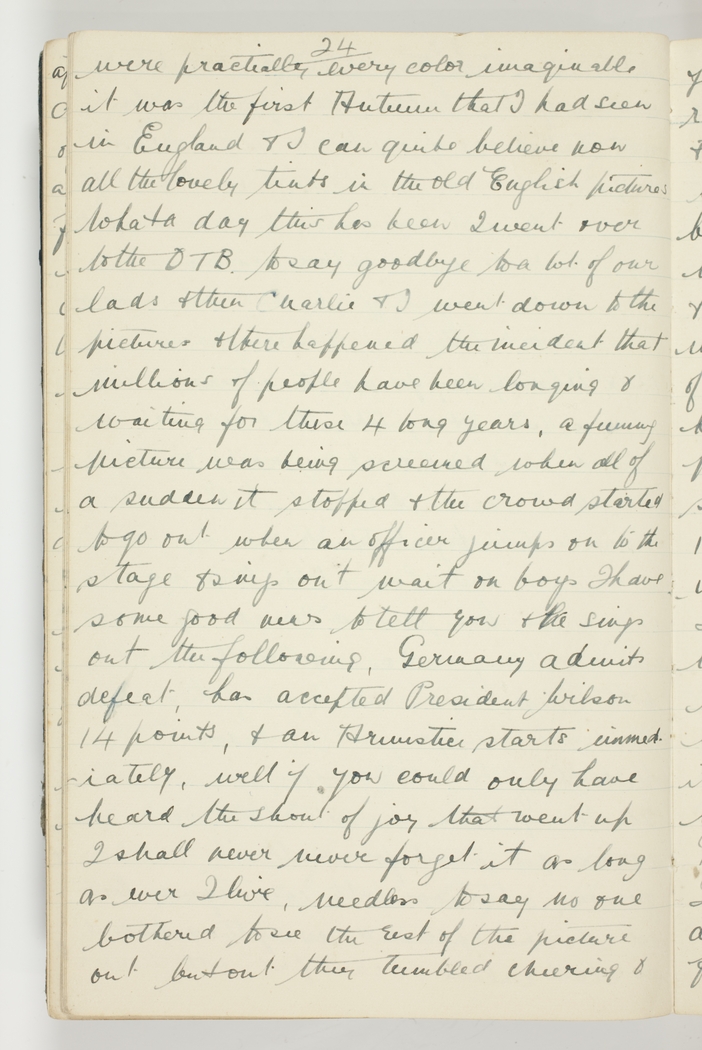 24
were practially every color imaginable
it was the first Autumn that I had seen
in England & I can quite believe now
all the lovely tints in the old English pictures
What a day this has been I went over
to the D T B. to say goodbye to a lot of our
lads & then Charlie & I went down to the
pictures & there happened the incident that
millions of people have been longing &
waiting for these 4 long years, a funny
picture was being screened when all of
a sudden it stopped & the crowd started
to go out when an officer jumps on to the
stage & sings out wait on boys I have
some good news to tell you & he sings
out the following, Germany admits
defeat, has accepted President Wilson
14 points, & an Armistice starts immed-
iately, well if you could only have
heard the shout of joy that went up
I shall never never forget it as long
as ever I live, needless to say no one
bothered to see the rest of the picture
out but out they tumbled cheering &